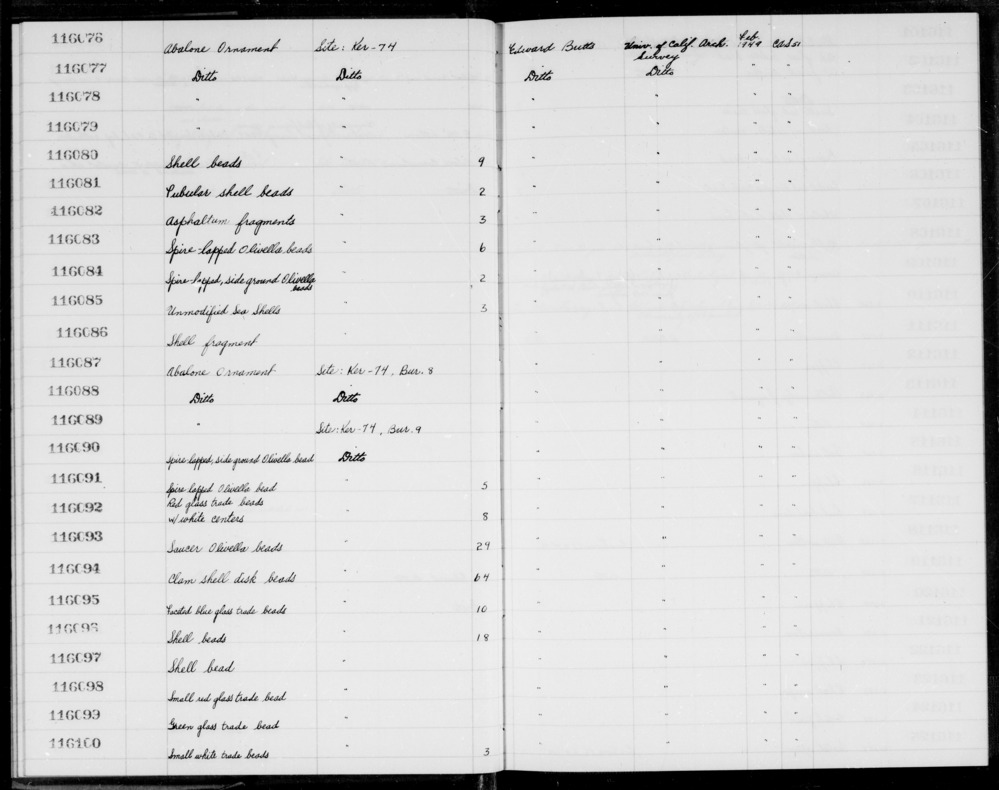 116076 Abalone Ornament Site: Ker-74 Edward Butts Univ. of Calif. Arch. Survey Feb. 1949 CAS 51
116077 Ditto Ditto Ditto Ditto " "
116078 " " " " " "
116079 " " " " " "
116080 Shell beads " 9 " " " "
116081 Tubular shell beads " 2 " " " "
116082 Asphaltum fragments " 3 " " " "
116083 Spire-lopped Olivella beads " 6 " " " "
116084 Spire-lopped, side ground Olivella beads " 2 " " " "
116085 Unmodified Sea Shells " 3 " " " "
116086 Shell fragment " " " " "
116087 Abalone Ornament Site: Ker-74, Bur. 8 " " " "
116088 Ditto Ditto " " " "
116089 " Site: Ker-74, Bur. 9 " " " "
116090 Spire lopped, side ground Olivella bead Ditto " " " "
116091 Spire lopped Olivella bead " 5 " " " "
116092 Red glass trade beads
w/ white centers " 8 " " " "
116093 Saucer Olivella beads " 29 " " " "
116094 Clam shell disk beads " 64 " " " "
116095 Faceted blue glass trade beads " 10 " " " "
116096 Shell beads " 18 " " " "
116097 Shell bead " " " " "
116098 Small red glass trade bead " " " " "
116099 Green glass trade bead " " " " "
116100 Small white trade beads " 3 " " " "